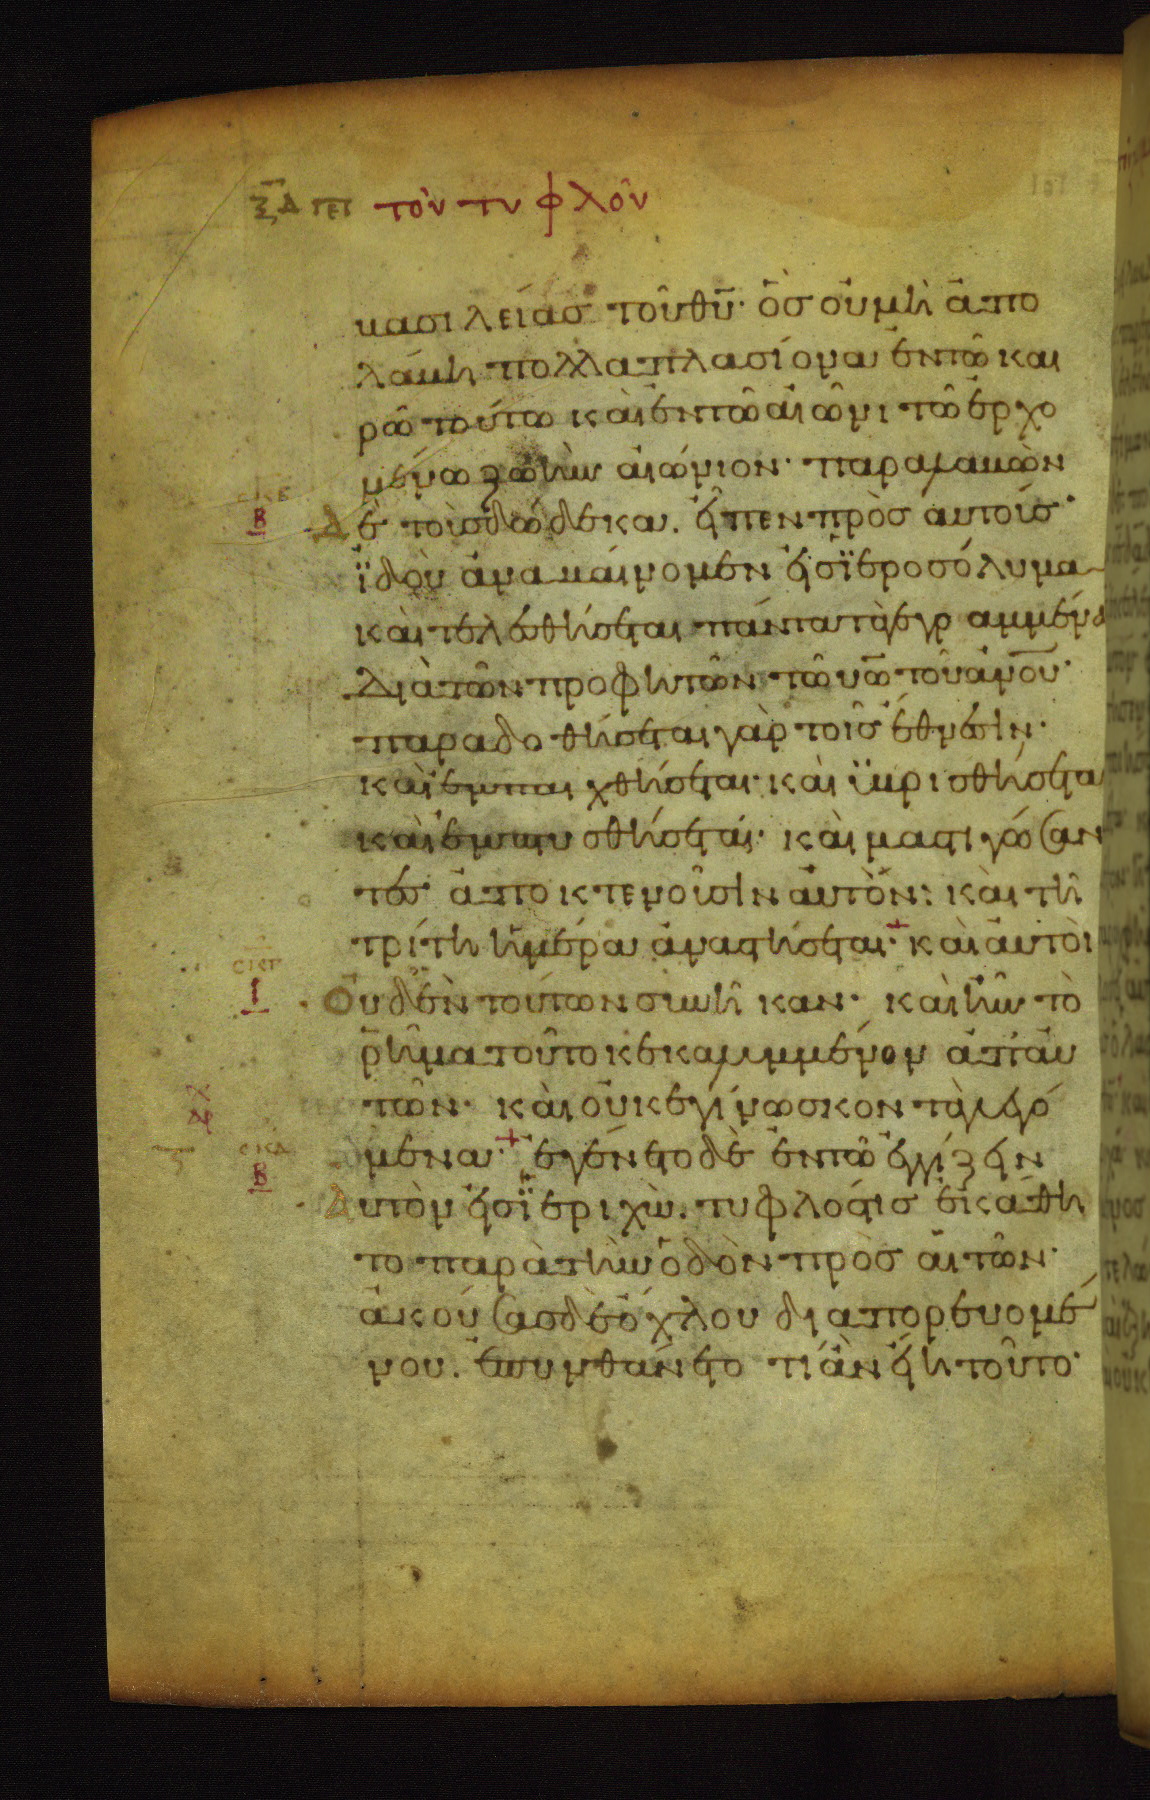 ξδ πε τὸν τυφλὸν
βασιλείας τοῦ θυ· ὃς οὐ μὴ ἀπο
λάβη πολλαπλασίονα ἐν τῶ και
ρῶ τούτω καὶ ἐν τῶ αἰῶνι τῶ ἐρχο
μένω ζωὴν αἰώνιον· παραλαβὼν
σκε
β
δὲ τοὺς δώδεκα. εἶπεν πρὸς αὐτούς·
ἰδοὺ ἀναβαίνομεν εἰς ϊεροσόλυμα
καὶ τελεσθήσεται πάντα τὰ γεγραμμένα
διὰ τῶν προφητῶν τῶ υω τοῦ ανου·
παραδοθήσεται γὰρ τοῖς ἔθνεσιν·
καὶ ἐμπαιχθήσεται· καὶ ϋβρισθήσεται
καὶ ἐμπτυσθήσεται· καὶ μαστιγώσαν
τες ἀποκτενοῦσιν αὐτόν: καὶ τῆ
τρίτη ἡμέρα ἀναστήσεται· + καὶ αὐτοὶ
σκϛ
ι
Οὐδὲν τούτων συνῆκαν· καὶ ἦν τὸ
ῥῆμα τοῦτο κεκαλυμμένον ἀπ' αὐ
τῶν· καὶ οὐκ ἐγίνωσκον τὰ λεγό
μενα· + ἐγένετο δὲ ἐν τῶ ἐγγίζειν
β
Αὐτὸν εἰς ϊεριχὼ. τυφλός τις ἐκάθη
το παρὰ τὴν ὁδὸν προσαιτῶν·
ἀκούσας δὲ ὄχλου διαπορευομέ
νου. ἐπυνθάνετο τί ἂν εἴη τοῦτο·